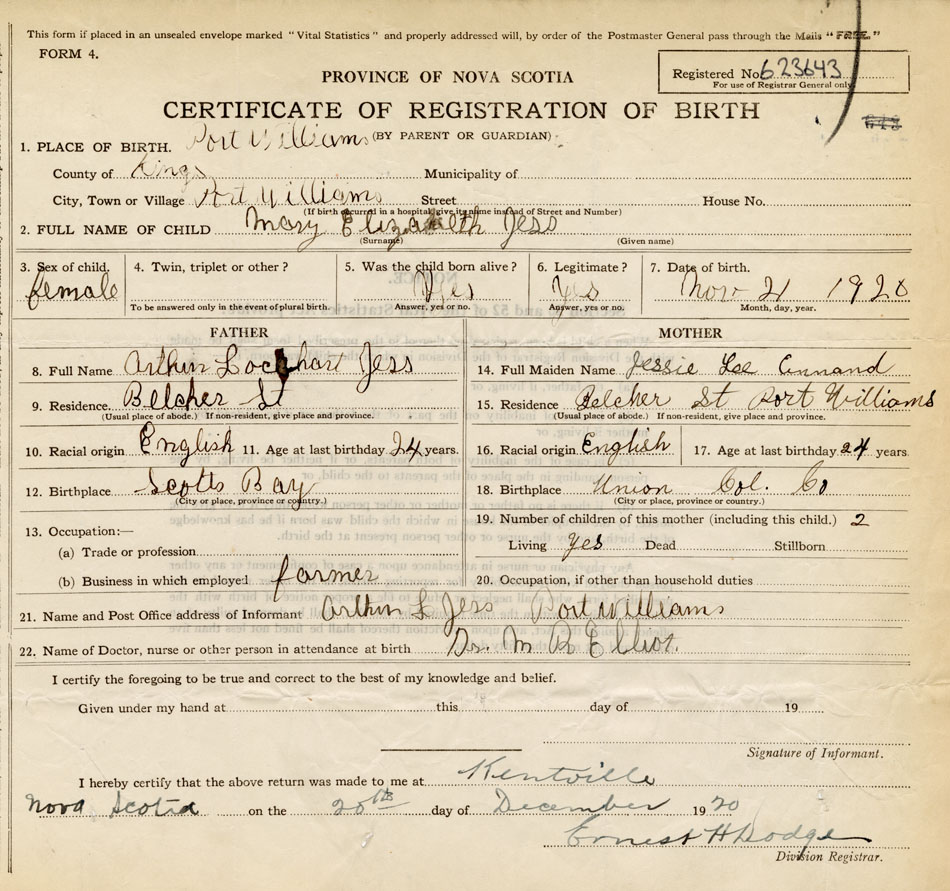 This form if placed in an unsealed envelope marked "Vital Statistics" and properly addressed will, by order of the Postmaster General pass through the Mails "FREE."
FORM 4.
PROVINCE OF NOVA SCOTIA
Registered No. 623643
For use of Registrar General only.
CERTIFICATE OF REGISTRATION OF BIRTH
(BY PARENT OR GUARDIAN)
1. PLACE OF BIRTH. Port Williams
County of Kings Municipality of
City, Town or Village Port Williams Street House No.
(If birth occurred in a hospital, give its name instead of Street and Number)
2. FULL NAME OF CHILD Mary Elizabeth Jess
(Surname) (Given name)
3. Sex of child. female
4. Twin, triplet or other?
To be answered only in the event of plural birth.
5. Was the child born alive? Yes
Answer, yes or no.
6. Legitimate? Yes
Answer, yes or no.
7. Date of birth. Nov 21 1920
Month, day, year.
FATHER
8. Full Name Arthur Lockhart Jess
9. Residence. Belcher St
(Usual place of abode.) If non-resident, give place and province.
10. Racial origin English 11. Age at last birthday 24 years.
12. Birthplace Scotts Bay
(City or place, province or country.)
13. Occupation:—
(a) Trade or profession
(b) Business in which employed farmer
MOTHER
14. Full Maiden Name Jessie Lee Annand
15. Residence Belcher St Port Williams
(Usual place of abode.) If non-resident, give place and province.
16. Racial origin English 17. Age at last birthday 24 years
18. Birthplace Union Col. Co
(City or place, province or country.)
19. Number of children of this mother (including this child.) 2
Living yes Dead Stillborn
20. Occupation, if other than household duties
21. Name and Post Office address of Informant Arthur L Jess Port Williams
22. Name of Doctor, nurse or other person in attendance at birth Dr. M R Elliot.
I certify the foregoing to be true and correct to the best of my knowledge and belief.
Given under my hand at this day of 19
Signature of Informant.
I hereby certify that the above return was made to me at Kentville
Nova Scotia on the 20th day of December 1920
Ernest H Dodge
Division Registrar.